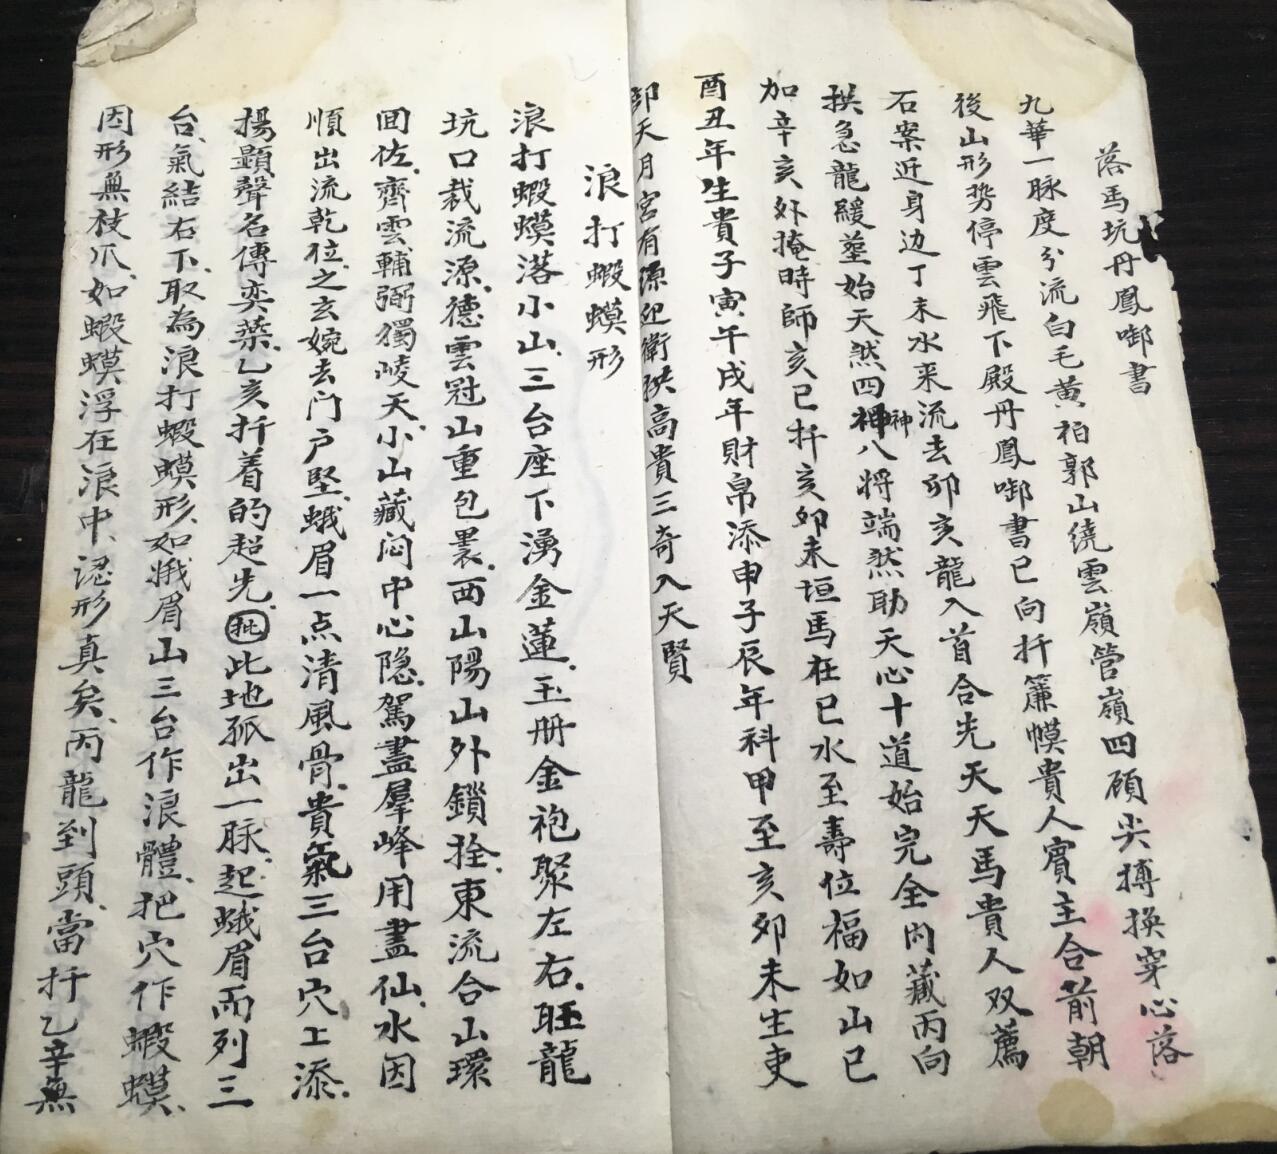 落馬坑丹鳳啣書
九華一脉度分流白毛黄柏郭山繞雲嶺管嶺四顧尖搏換穿心落
後山形势停雲飛下殿丹鳳啣書巳向扦簾幙貴人賓主合前朝
石案近身边丁未水来流去卯亥龍入首合先天天馬貴人双薦
拱急龍緩塟始天然四神神八將端然助天心十道始完全内藏丙向
加辛亥外掩時師亥巳扦亥卯未垣馬在巳水至壽位福如山巳
酉丑年生貴子寅午戌年財帛添申子辰年科甲至亥卯未生吏
卯天月宫有源迎衛拱高貴三奇入天賢
浪打蝦蟆形
浪打蝦蟆落小山、三台座下湧金蓮、玉册金袍聚左右、胚龍
坑口裁流源、德雲冠山重包褁、西山陽山外鎖拴、東流合山環
囬佐、齊雲輔弼獨崚天、小山藏闷中心隐、駕盡羣峰用盡仙、水因
順出流乾位、之玄婉去门户堅、蛾眉一点清風骨、貴氣三台穴上添、
揚顕聲名傳奕葉、乙亥扦着的超先、批此地孤出一脉、起蛾眉而列三
台、氣結右下、取為浪打蝦蟆形、如蛾眉山三台作浪體、把穴作蝦蟆、
因形無枝爪、如蝦蟆浮在浪中、認形真矣、丙龍到頭、當扦乙辛無